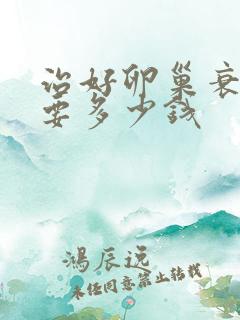 治好卵巢衰
要多少钱
鸿辰远
未经同意禁止转载